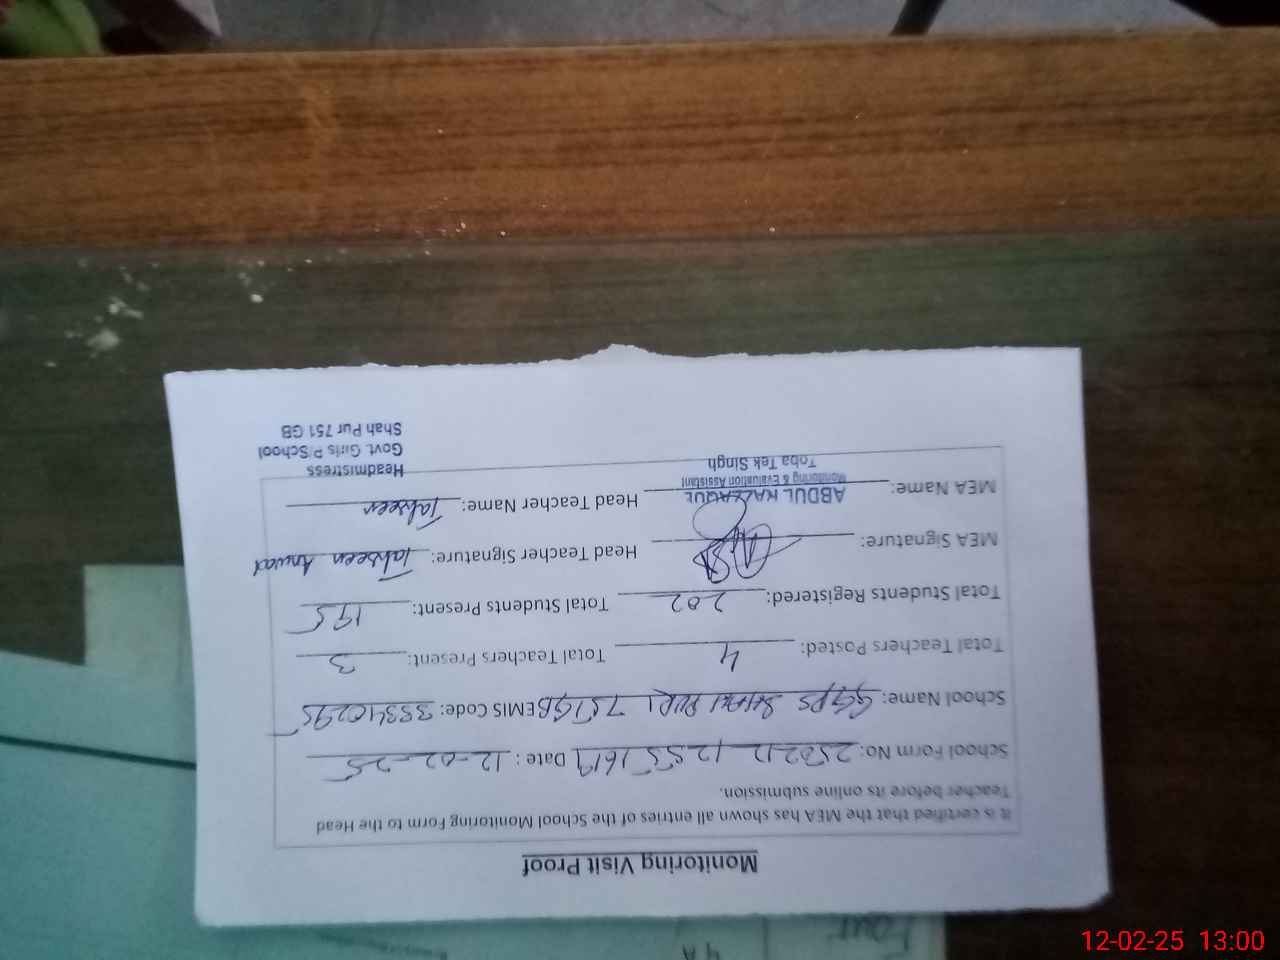 Monitoring Visit Proof
It is certified that the MEA has shown all entries of the School Monitoring Form to the Head
Teacher before its online submission.
School Form No: 250212 125516 19 Date : 12-02-25
School Name: GGPS SHAH PUR 751GB EMIS Code: 33340295
Total Teachers Posted: 4 Total Teachers Present: 3
Total Students Registered: 202 Total Students Present: 195
MEA Signature: Head Teacher Signature: Tahseen Anwar
MEA Name: ABDUL Head Teacher Name: Tahseen
Monitoring & Evaluation Assistant
Toba Tek Singh
Headmistress
Govt. Girls P/School
Shah Pur 751 GB
Four
4 A
12-02-25 13:00